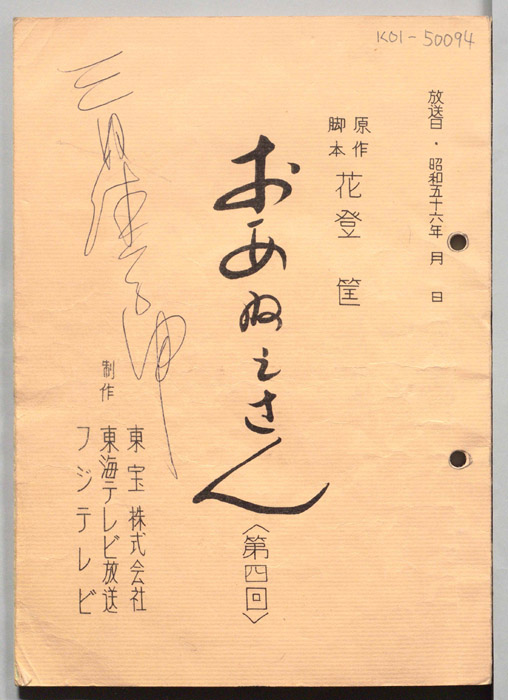 K01-50094
放送日・昭和五十六年 月 日
原作
脚本
花登 筐
おあねえさん
〈第四回〉
制作
東宝株式会社
東海テレビ放送
フジテレビ